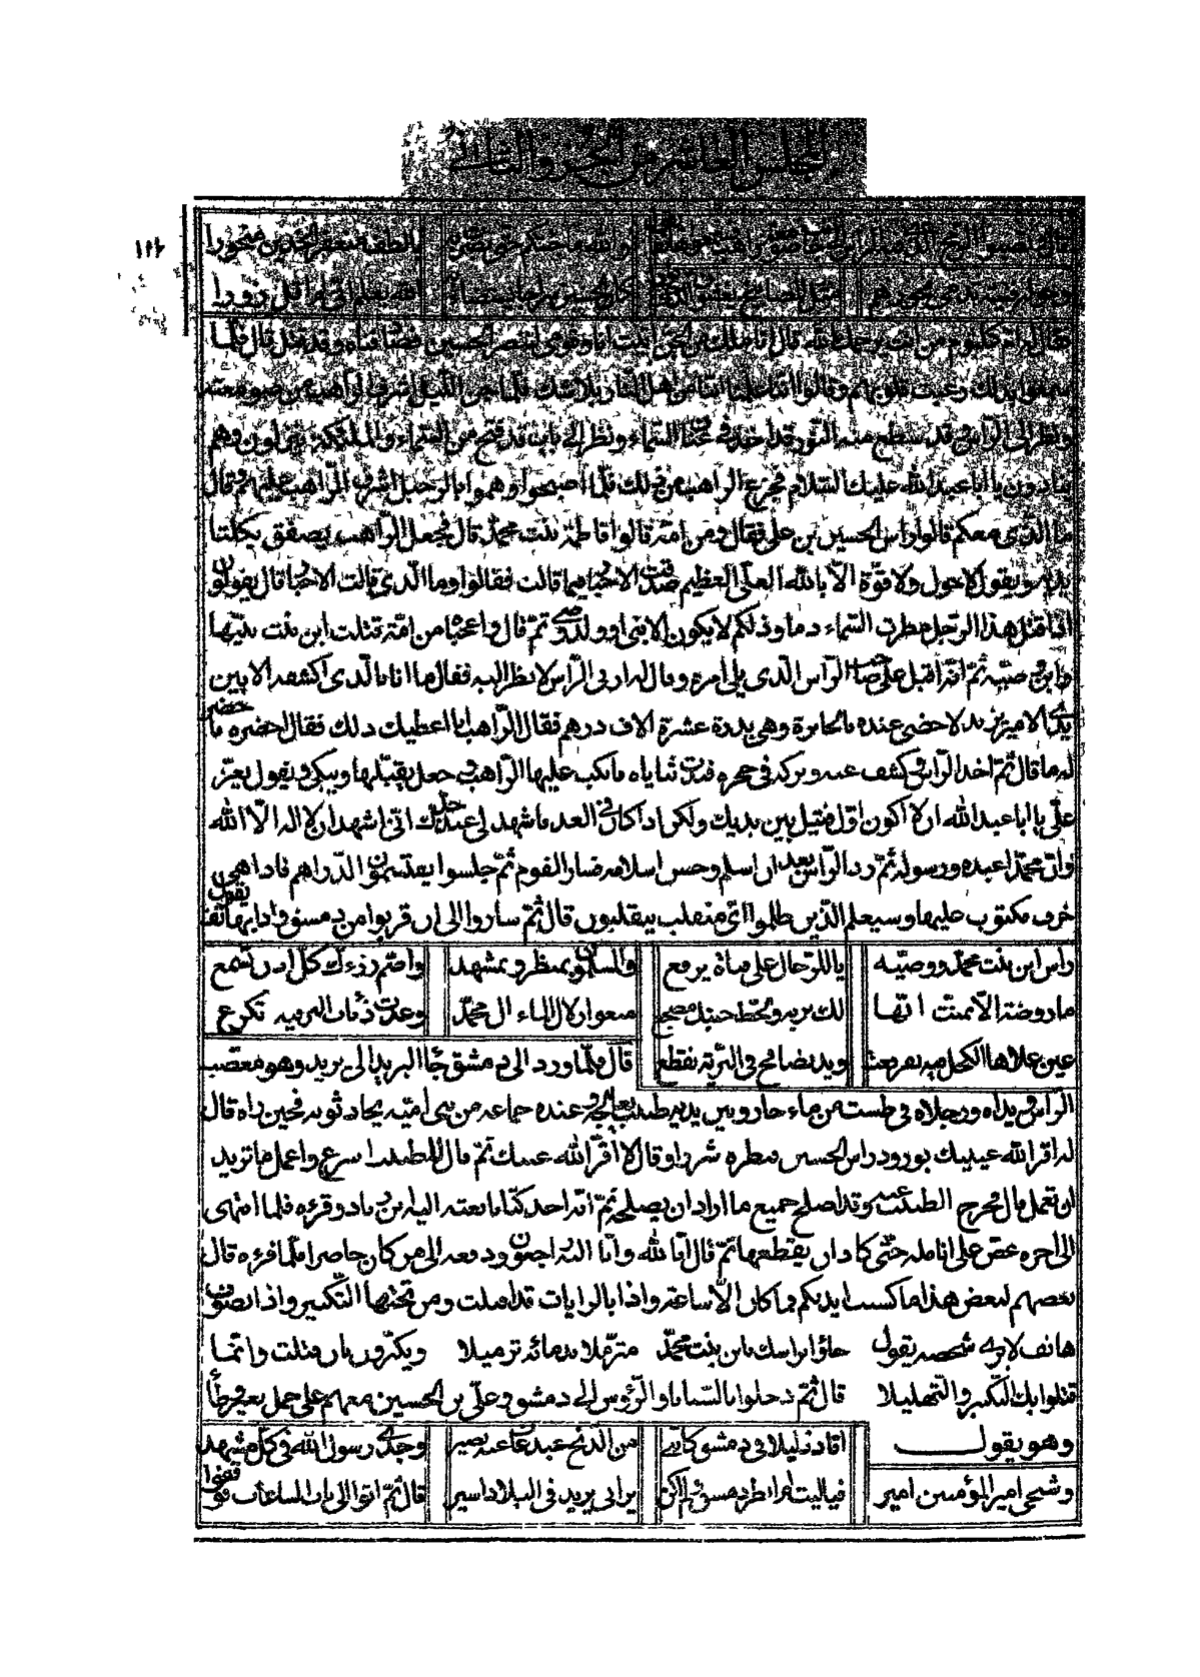 المجلس العاشر من الجزو الثاني
١١٢
والله ما جئتكم حتى بصرت به بالطف منعفر الخدين منحورا
كان الحسين سراجا يستضاء به الله يعلم اني لم اقل زورا
فقالت ام كلثوم من انت يرحمك الله قال انا ملك من الجن اتيت انا وقومي لننصر الحسين فصادفناه وقد قتل قال فلما
سمعوا بذلك رعبت قلوبهم وقالوا اننا علمنا اننا من اهل النار بلا شك فلما جن الليل اشرف الراهب من صومعته
ونظر الى الراس وقد سطع منه النور قد اخذ في عنان السماء ونظر الى باب قد فتح من السماء والملائكة ينزلون وهم
ينادون يا ابا عبد الله عليك السلام فجزع الراهب من ذلك فلما اصبحوا وهموا بالرحيل اشرف الراهب عليهم وقال
ما الذي معكم قالوا راس الحسين بن علي فقال ومن امه قالوا فاطمة بنت محمد قال فجعل الراهب يصفق بكلتا
يديه ويقول لا حول ولا قوة الا بالله العلي العظيم صدقت الاحبار فيما قالت فقالوا وما الذي قالت الاحبار قال يقولون
اذا قتل هذا الرجل مطرت السماء دما وذلكم لا يكون الا لنبي او ولد وصي ثم قال واعجباه من امة قتلت ابن بنت نبيها
وابن وصيه ثم انه اقبل على صاحب الراس الذي يلي امره وقال له ارني الراس لانظر اليه فقال ما انا بالذي اكشفه الا بين
يدي الامير يزيد لاحضى عنده بالجايزة وهي بدرة عشرة الاف درهم فقال الراهب انا اعطيك ذلك فقال احضره فاحضر
له ما قال ثم اخذ الراس وكشف عنه وتركه في حجره فبدت ثناياه فانكب عليها الراهب وجعل يقبلها ويبكي ويقول يعز
علي يا ابا عبد الله ان لا اكون اول قتيل بين يديك ولكن اذا كان في الغد فاشهد لي عند جدك اني اشهد ان لا اله الا الله
وان محمدا عبده ورسوله ثم رد الراس بعد ان اسلم وحسن اسلامه فسار القوم ثم جلسوا يقتسمون الدراهم فاذا هي
خزف مكتوب عليها وسيعلم الذين ظلموا اي منقلب ينقلبون قال ثم ساروا الى ان قربوا من دمشق واذا بهاتف يقول
راس ابن بنت محمد ووصيه يا للرجال على قناة يرفع والمسلمون بمنظر وبمشهد واصم رزءك كل اذن تسمع
ما روضة الا تمنت انها لك تربة ولخط جنبك مضجع منعوا زلال الماء ال محمد وغدت ذئاب البر منه تكرع
عين علاها الكحل فيه تفرعت ويد تصافح في البرية تقطع قال فلما ورد الى دمشق جاء البريد الى يزيد وهو معصب
الراس ويداه ورجلاه في طست من ماء حار وبين يديه طبيب يعالجه وعنده جماعة من بني امية يحادثونه فحين راه قال
له اقر الله عينيك بورود راس الحسين فنظره شزرا وقال لا اقر الله عينيك ثم قال للطبيب اسرع واعمل ما تريد
ان تعمل قال فخرج الطبيب عنه وقد اصلح جميع ما اراد ان يصلحه ثم انه اخذ كتابا بعثه اليه ابن زياد وقرءه فلما انتهى
الى اخره عض على انامله حتى كاد ان يقطعها ثم قال انا لله وانا اليه راجعون ودفعه الى من كان حاضرا فلما قرءه قال
بعضهم لبعض هذا ما كسبت ايديكم فما كان الا ساعة واذا بالرايات قد اقبلت ومن تحتها التكبير واذا بصوت
هاتف لا يرى شخصه يقول جاؤا براسك يابن بنت محمد متزملا بدمائه ترميلا ويكبرون بان قتلت وانما
قتلوا بك التكبير والتهليلا قال ثم دخلوا بالسبايا والرؤس الى دمشق وعلي بن الحسين معهم على جمل بغير وطاء
وهو يقول اقاد ذليلا في دمشق كانني من الزنج عبد غاب عنه نصير وجدي رسول الله في كل مشهد
وشيخي امير المؤمنين امير فياليت لم انظر دمشق ولم اكن يراني يزيد في البلاد اسير قال ثم اتوا الى باب الساعات فوقفوا